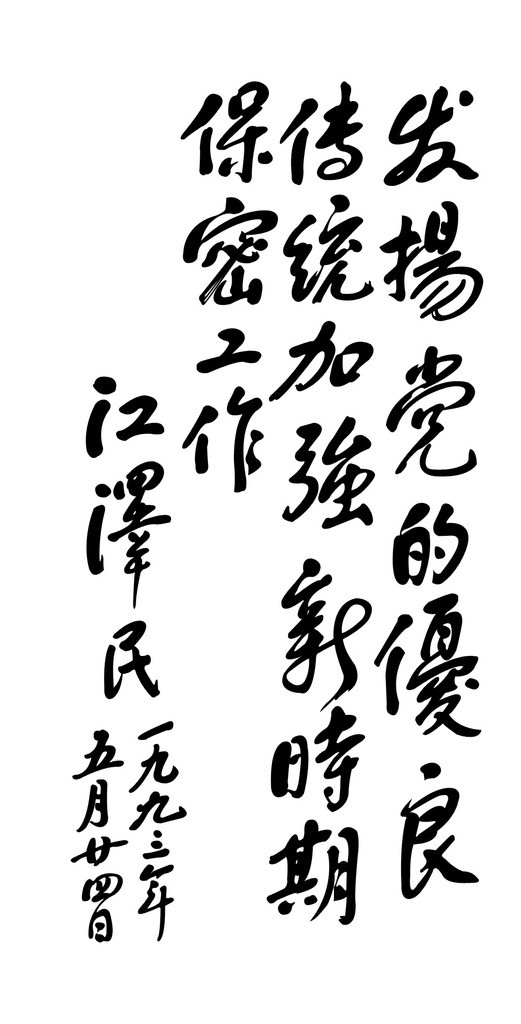 发揚党的優良
传統加強新時期
保密工作
江澤民
一九九三年
五月廿四日